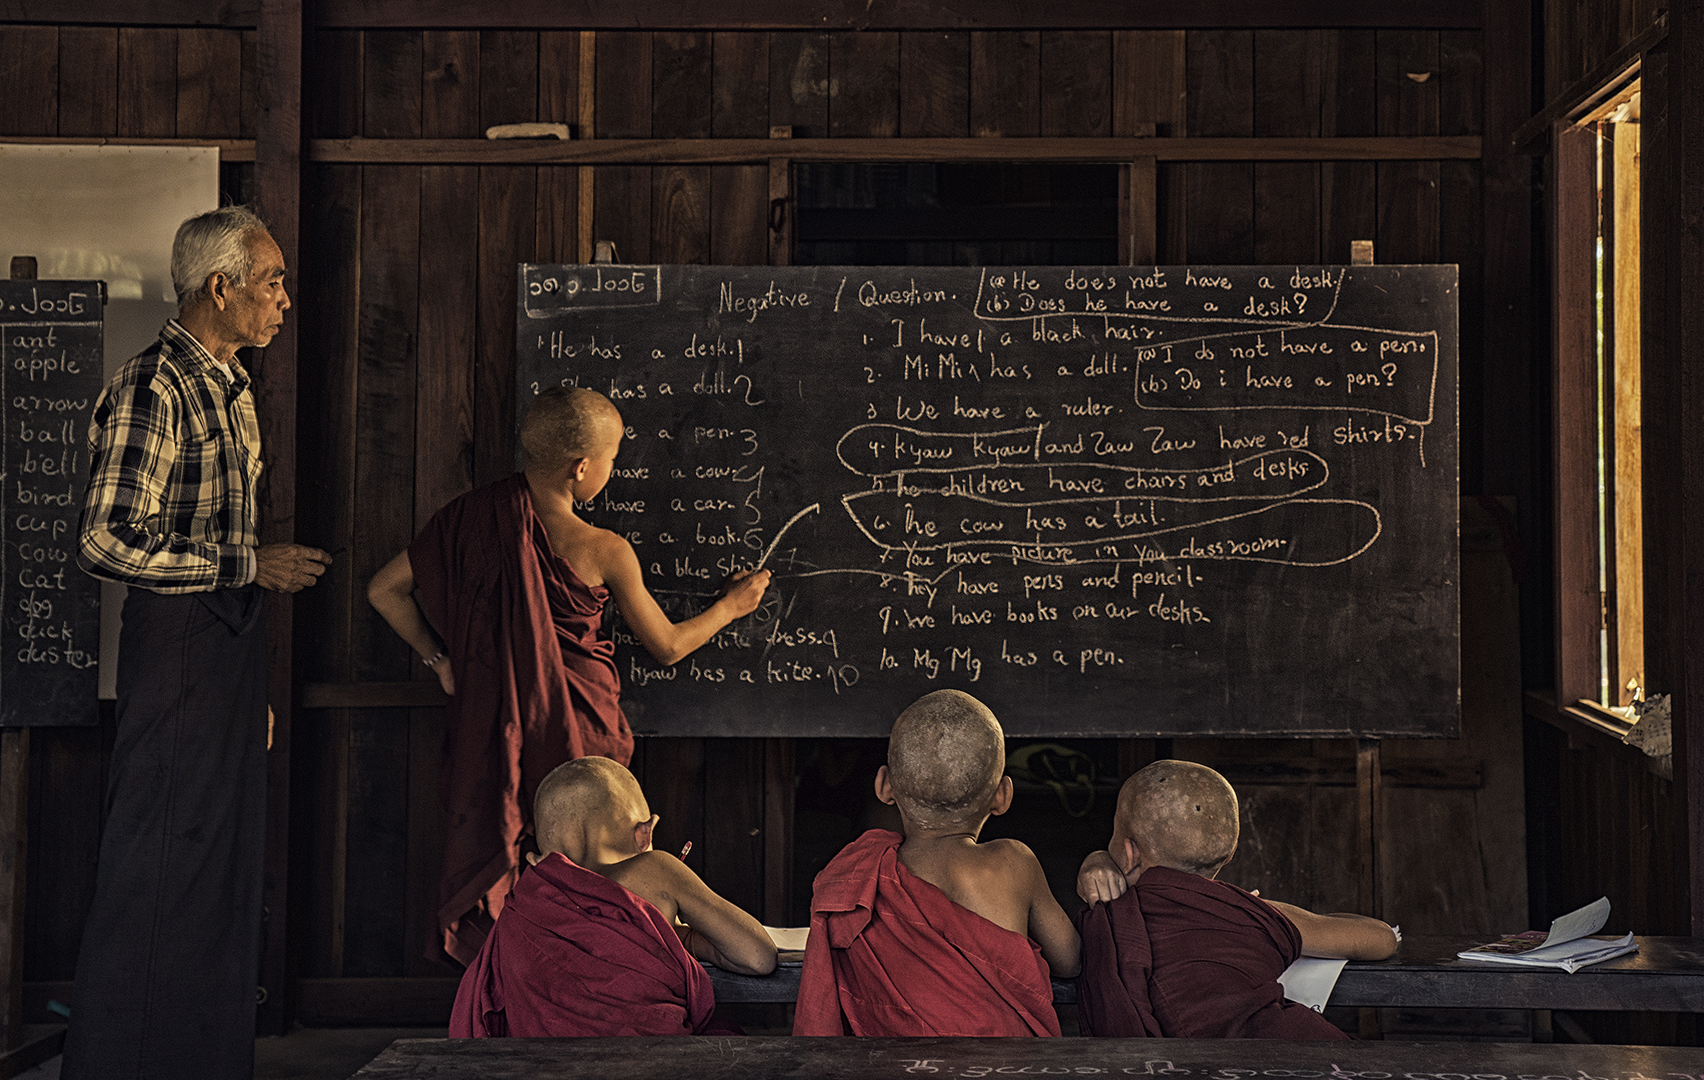 ၁၈.၁.၂၀၁၆
ant
apple
arrow
ball
bell
bird
cup
cow
cat
dog
duck
duster
Negative / Question.
(a) He does not have a desk.
(b) Does he have a desk?
1. He has a desk. 1
has a doll. 2
a pen. 3
have a cow. 4
have a car. 5
a book. 6
a blue 7
dress. 9
kyaw has a kite. 10
1. I have / a black hair.
2. Mi Mi ^ has a doll.
3 We have a ruler.
4. kyaw kyaw / and Zaw Zaw have red shirts.
5. The children have chairs and desks
6. The cow has a tail.
7. You have picture in you classroom.
8. They have pens and pencil.
9. We have books on our desks
10. Mg Mg has a pen.
(a) I do not have a pen.
(b) Do i have a pen?